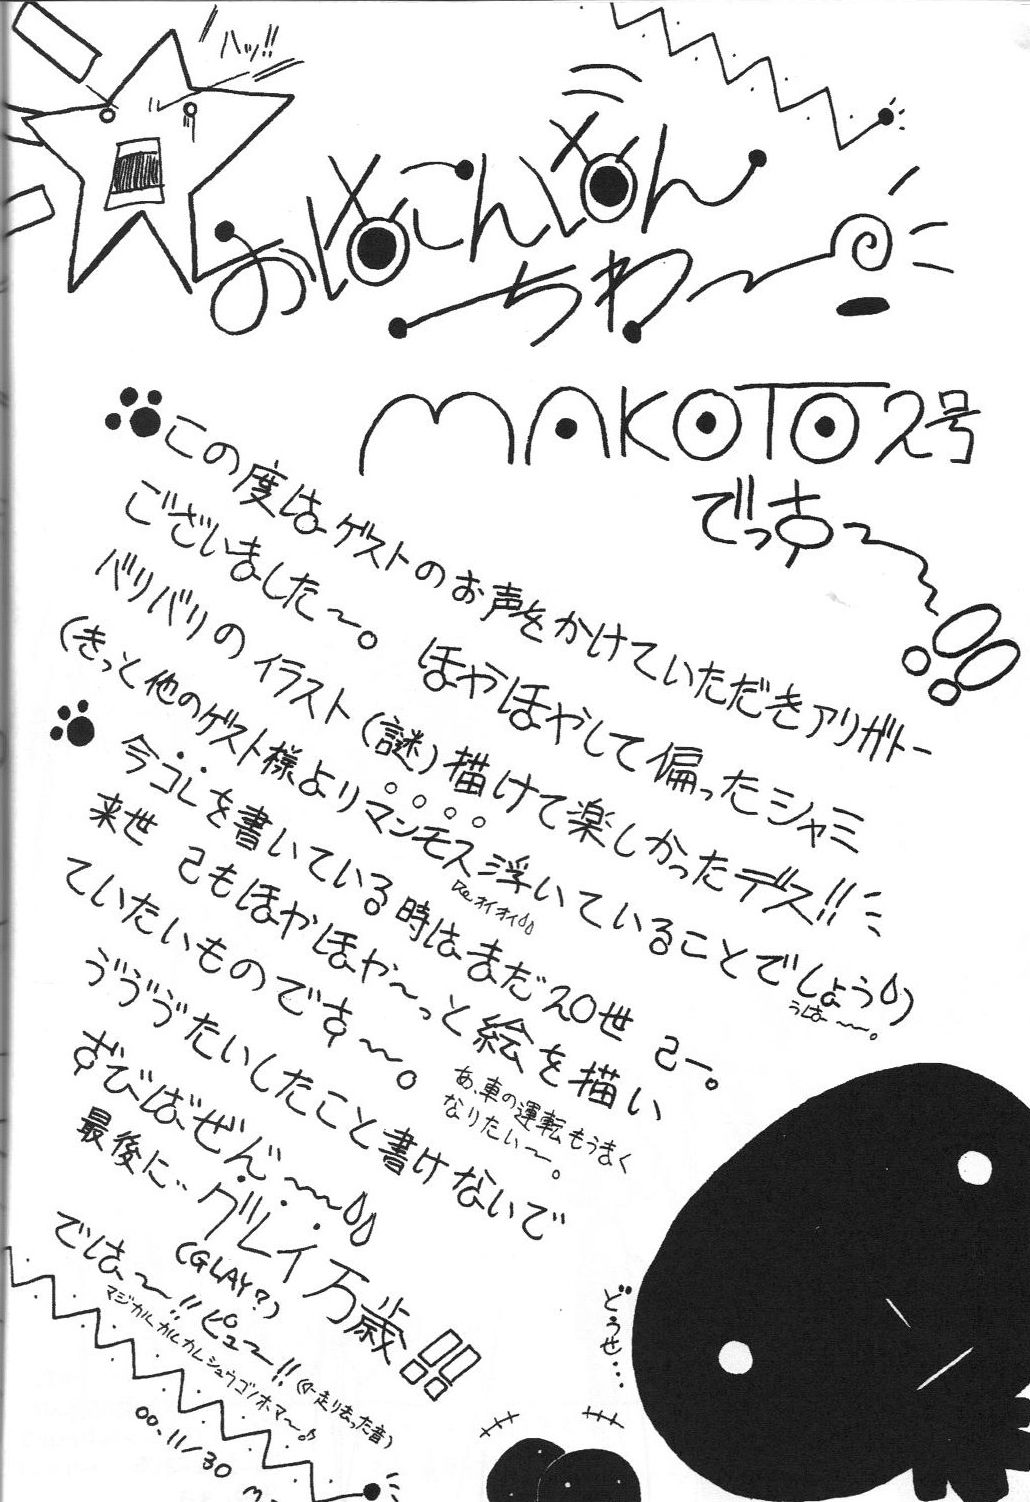 ハッ!!
おめこんめん
ちわ〜
MAKOTO2号
でっす〜!!
この度はゲストのお声をかけていただきアリガトー
ございました〜。ほやほやして偏ったシャミ
バリバリのイラスト(謎)描けて楽しかったデス!!
(きっと他のゲスト様よりマンモス浮いていることでしょう)
オイオイ
うはー〜。
今コレを書いている時はまだ20世 己ー。
来世 己もほやほや〜っと絵を描い
ていたいものです〜。
あ、車の運転もうまく
なりたい〜。
ゔゔゔたいしたこと書けないで
ずびばぜん〜
最後に..グレイ万歳!!
(GLAY?)
では〜!!ピュ〜!!(←走り去った音)
マジカルカルカルシュウゴノホマ〜♪
00.11/30
どうせ...